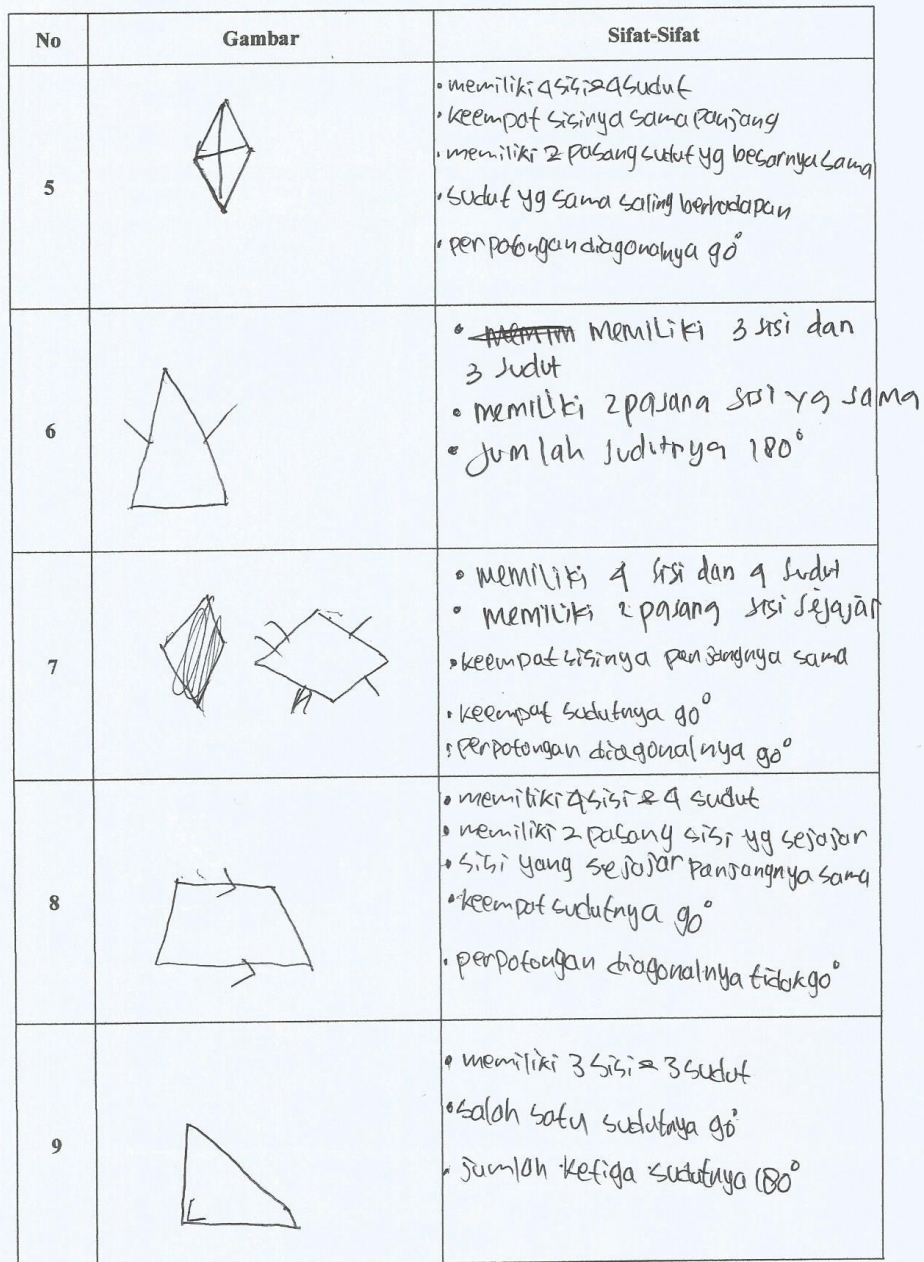 No Gambar Sifat-Sifat
5
• memiliki 4 sisi & 4 sudut
• keempat sisinya sama panjang
• memiliki 2 pasang sudut yg besarnya sama
• sudut yg sama saling berhadapan
• perpotongan diagonalnya 90°
6
• memiliki 3 sisi dan
3 sudut
• memiliki 2 pasang sisi yg sama
• jumlah sudutnya 180°
7
• memiliki 4 sisi dan 4 sudut
• memiliki 2 pasang sisi sejajar
• keempat sisinya panjangnya sama
• keempat sudutnya 90°
• perpotongan diagonalnya 90°
8
• memiliki 4 sisi & 4 sudut
• memiliki 2 pasang sisi yg sejajar
• sisi yang sejajar panjangnya sama
• keempat sudutnya 90°
• perpotongan diagonalnya tidak 90°
9
• memiliki 3 sisi & 3 sudut
• salah satu sudutnya 90°
• jumlah ketiga sudutnya 180°